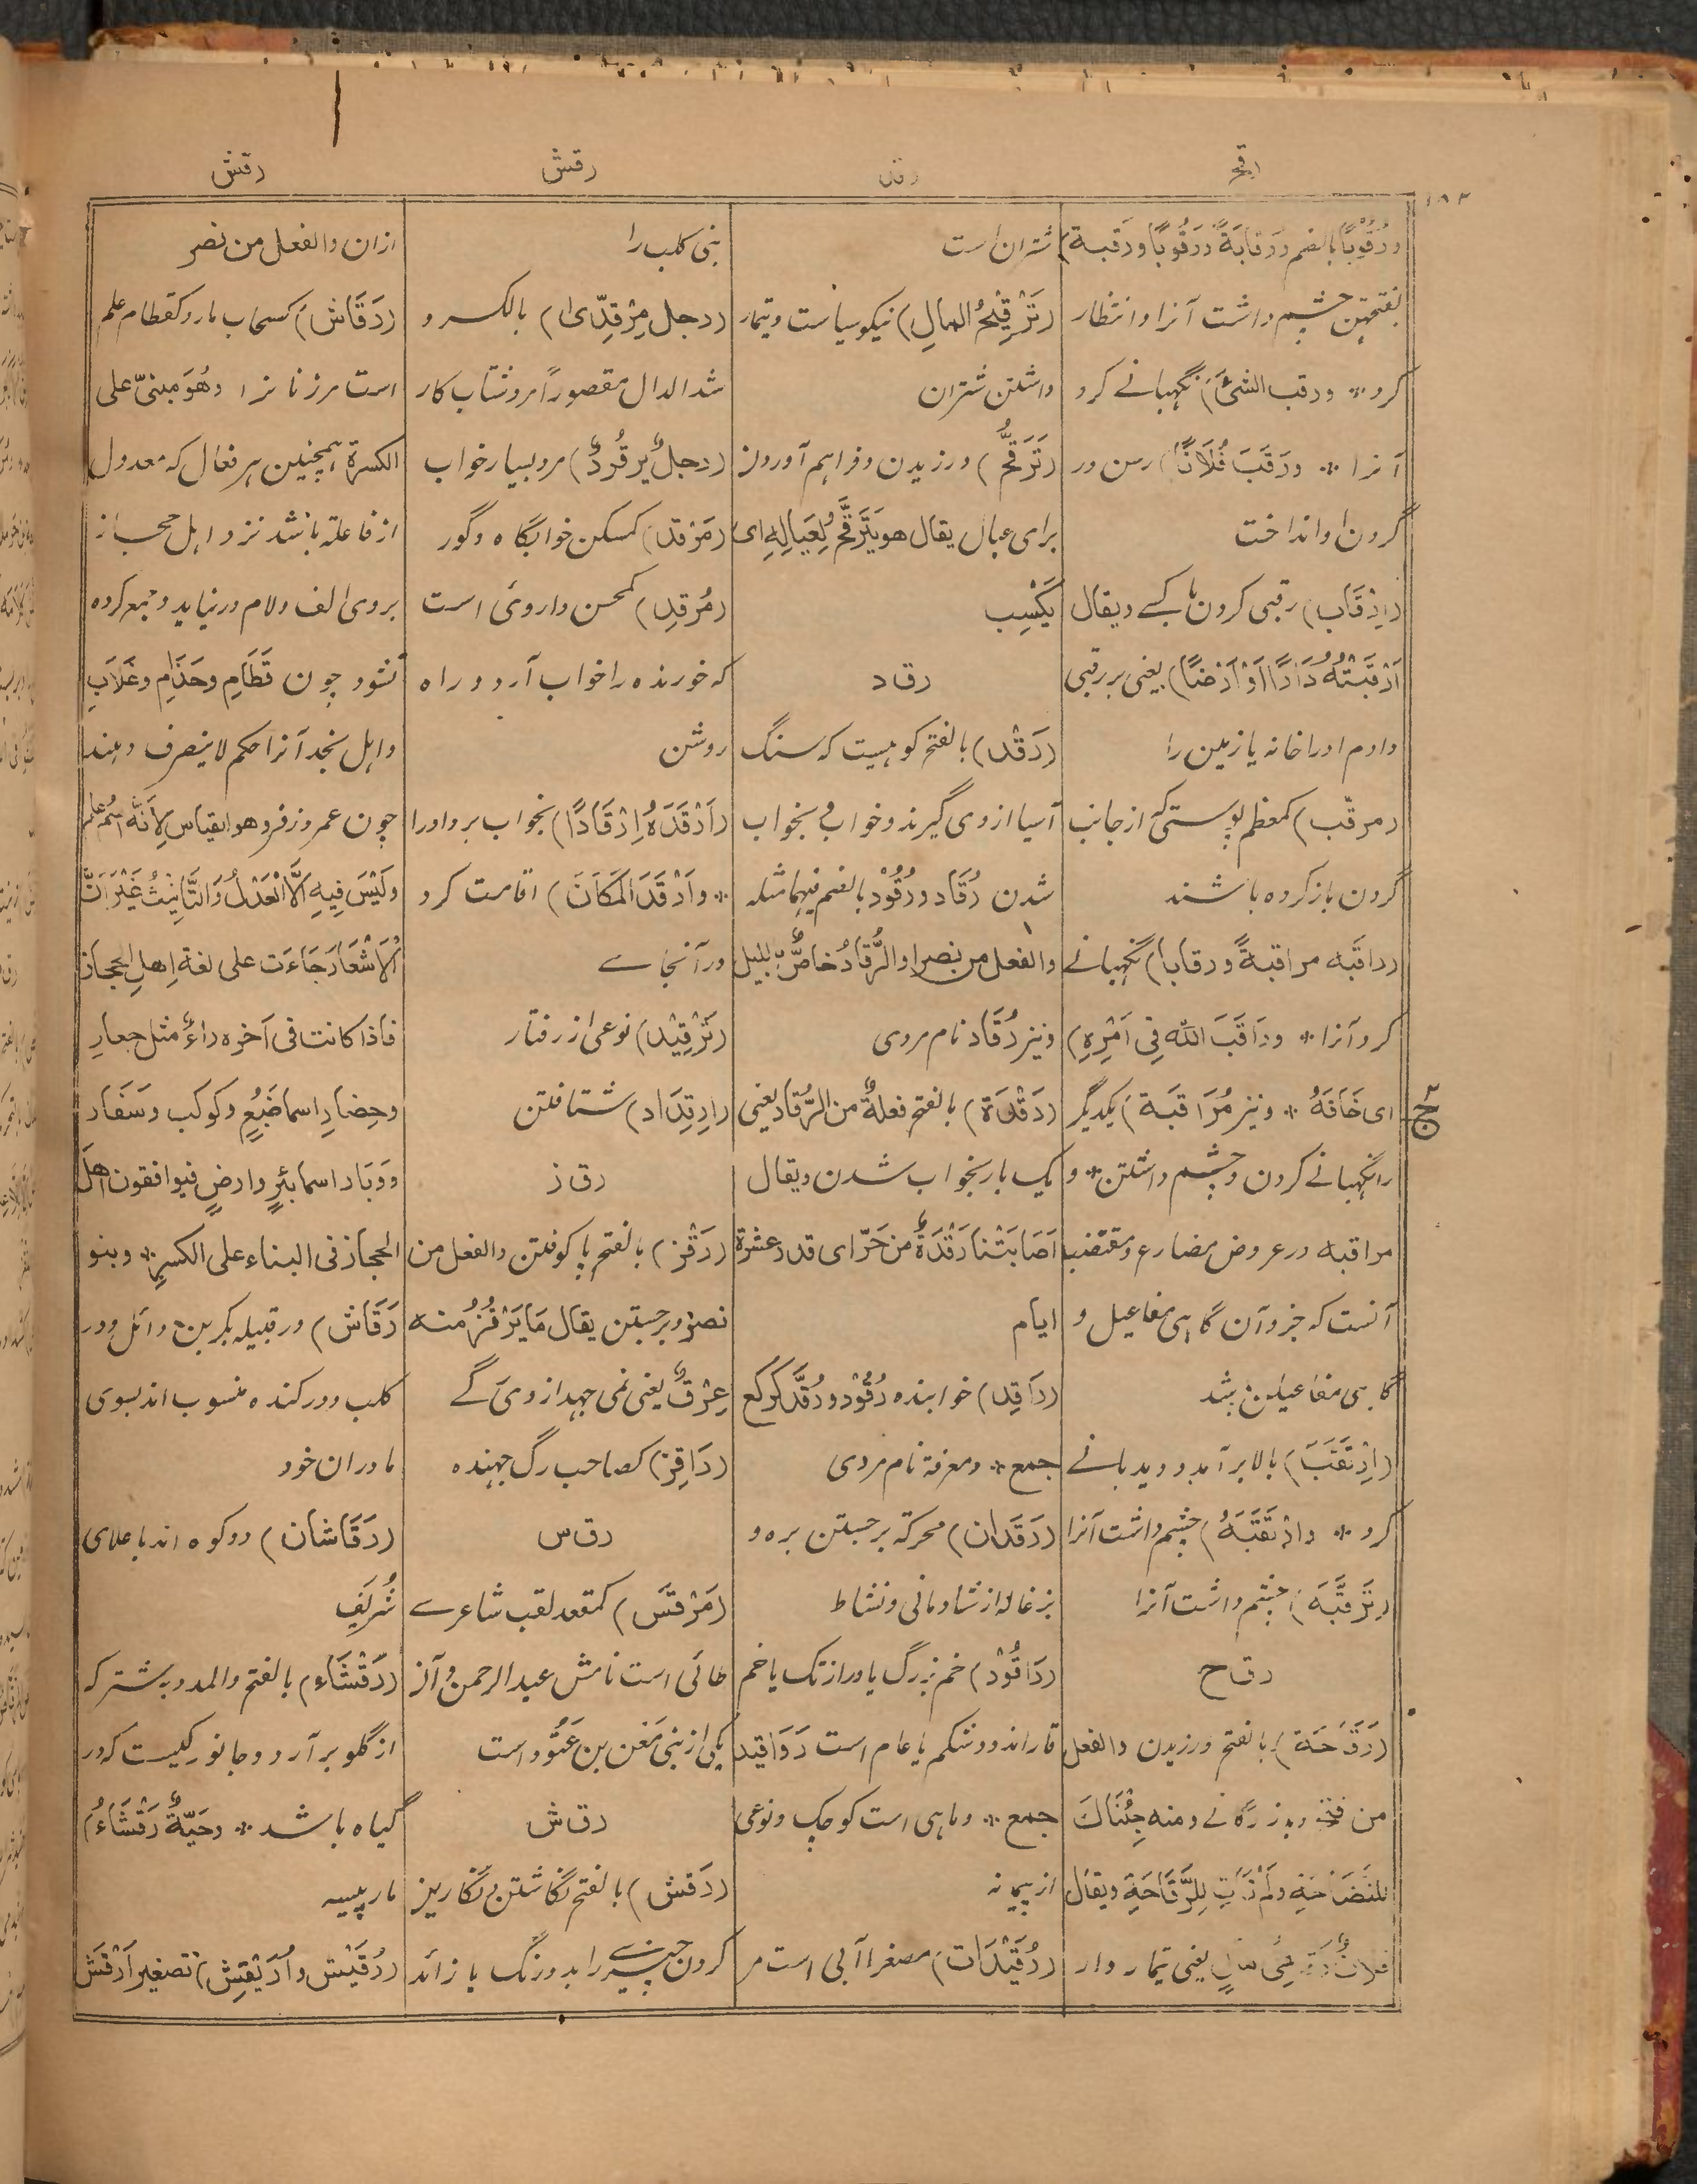 رقح
رقد
رقش
رقش
ورُقُوْبًا بالضم ورَقَابَةً ورَقُوبًا ورَقبة)
بفتحتین چشم داشت آنرا وانتظار
کرد * ورقب الشئَ) نگهبانے کرد
آنرا * ورَقَبَ فُلَانًا) رسن در
گردن او انداخت
(اِرْقَاب) رقبی کردن با کسے ویقال
اَرْقَبْتُهُ دَارًا اَوْ اَرْضًا) یعنی بر رقبی
دادم اورا خانه یا زمین را
(مرقّب) کمعظم پوستی که از جانب
گردن باز کرده باشند
(راقَبه مراقبةً ورقابا) نگهبانے
کرد آنرا * ورَاقَبَ اللّٰهَ فِی اَمْرِهِ)
ای خَافَهُ * ونیز مُرَاقبَة) یکدیگر
را نگهبانے کردن وچشم داشتن * و
مراقبه در عروض مضارع ومقتضب
آنست که جزو آن گاهی مفاعیل و
گاهی مفاعیلن باشد
(اِرْتَقَبَ) بالا برآمد ودیدبانے
کرد * وارْتَقَبَهُ) چشم داشت آنرا
(تَرَقَّبَهَ) چشم داشت آنرا
رق ح
(رَقَاحَة) بالفتح ورزیدن والفعل
من فتح وبازرگانے ومنه جِئْنَاكَ
للنَّصَاحَةِ ولَمْ نَأتِ لِلرَّقَاحَةِ ویقال
فلانٌ رَقَاحِیُّ مَالٍ یعنی تیمار دار
شتران است
(تَرْقِیْحُ المالِ) نیکو سیاست وتیمار
داشتن شتران
(تَرَقُّح) ورزیدن وفراهم آوردن
برای عیال یقال هو یَتَرَقَّحُ لِعَیَالِهِ ای
یَکْسِب
رق د
(رَقْد) بالفتح کوهیست که سنگ
آسیا ازوی گیرند وخواب و بخواب
شدن رُقَاد ورُقُوْد بالضم فیهما مثله
والفعل من نصر او الرُّقَادُ خاصٌّ باللیل
ونیز رُقَاد نام مردی
(رَقْدَة) بالفتح فعلةٌ من الرُّقَاد یعنی
یک بار بخواب شدن ویقال
اَصَابَتْنا رَقْدَةٌ من حَرّ ای قدر عشرة
ایام
(رَاقِد) خوابنده رُقُوْد ورُقَّد کرکع
جمع * ومعرفة نام مردی
(رَقَدَان) محرکة برجستن بره و
بزغاله از شادمانی ونشاط
(رَاقُوْد) خم بزرگ یا دراز تک یا خم
قار اندود شکم یا عام است رَوَاقید
جمع * وماهی است کوچک ونوعی
از پیمانه
(رُقَیْدَات) مصغرا آبی است مر
بنی کلب را
(رجل مِرْقِدّیٰ) بالکسر و
شد الدال مقصوراً مرد شتاب کار
(رجلٌ یَرقُودٌ) مرد بسیار خواب
(مَرْقد) کمسکن خوابگاه وگور
(مُرْقِد) کمحسن داروی است
که خورنده را خواب آرد وراه
روشن
(اَرْقَدَهُ اِرْقَادًا) بخواب برد اورا
* واَرْقَدَ المَکَانَ) اقامت کرد
در آنجاے
(تَرْقِیْد) نوعی از رفتار
(اِرقِدَاد) شتافتن
رق ز
(رَقْز) بالفتح پا کوفتن والفعل من
نصر وبرجستن یقال مَا یَرْقُزُ منه
عِرْقٌ یعنی نمی جهد ازوی رگے
(رَاقِز) کصاحب رگ جهنده
رق س
(مَرْقَس) کمقعد لقب شاعرے
طائی است نامش عبد الرحمن وآن
یکی از بنی مَعْن بن عَتُوْد است
رق ش
(رَقش) بالفتح نگاشتن ونگاریز
کردن چیزے را بدو رنگ یا زائد
ازان والفعل من نصر
(رَقَاش) کسحاب مار وکقطام علم
است مر زنانرا وهُوَ مبنیّ علی
الکسرة همچنین هر فعال که معدول
از فاعلة باشد نزد اهل حجاز
بروی الف ولام درنیاید وجمع کرده
نشود چون قَطَامِ وحَذَامِ وغَلَابِ
واهل نجد آنرا حکم لا ینصرف دهند
چون عمر وزفر وهو القیاس لِاَنَّه اسْمُ علم
ولَیْسَ فِیهِ اِلَّا الْعَدْلُ وَالتَّانِیْثُ غَیْرَ اَنَّ
الْاَشْعَارَ جَاءَت علی لغة اِهلِ الحجاز
فاذا کانت فی آخره راءٌ مثل جعارِ
وحِضارِ اسما ضَبُعٍ وکوکب وسَفَارِ
ووَبَارِ اسما بئرٍ وارضٍ فیوافقون اهلَ
الحجاز فی البناء علی الکسر * وبنو
رَقَاش) در قبیله بکر بن وائل ودر
کلب ودر کنده منسوب اند بسوی
مادران خود
(رَقَاشان) دو کوه اند باعلای
شُرَیَفِ
(رَقْشَاء) بالفتح والمد وبه شتر که
از گلو بر آرد وجانورکیست که در
گیاه باشد * وحَیَّةٌ رَقْشَاءُ)
مار پیسه
(رُقَیْش واُرَیْقِش) تصغیر اَرْقَش